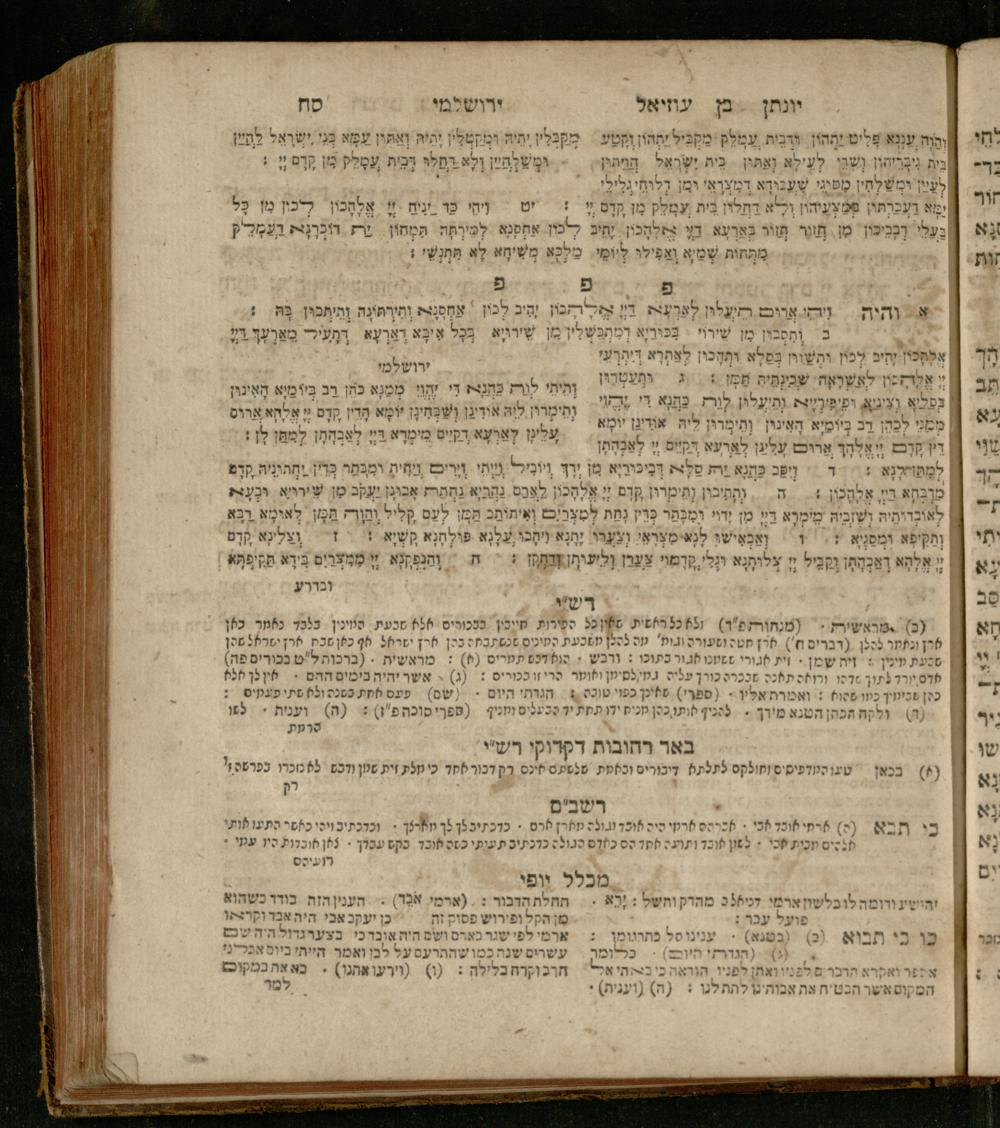 יונתן בן עוזיאל ירושלמי סח
והוה עננא פליט יתהון ודבית עמלק מקביל יתהון וקטע
בית גיבריהון ושרי לעילא ואתון בית ישראל הויתון
לעיין ומשלהיין מסוגי שעבודא דמצראי ומן דלוחי גלילי
ימא דעברתון במצעיהון ולא דחלון בית עמלק מן קדם יי :
מקבלין יתיה ומקטלין יתיה ואתון עמא בני ישראל להיין
ומשלהיין ולא דחלו דבית עמלק מן קדם יי :
יט ויהי כד יניח יי אלהכון לכון מן כל
בעלי דבביכון מן חזור חזור בארעא דיי אלהכון יהיב לכון אחסנא למירתה תמחון ית דוכרנא דעמלק
מתחות שמיא ואפילו ליומי מלכא משיחא לא תתנשי :
פ פ פ
א והיה ויהי ארום תיעלון לארעא דיי אלהכון יהיב לכון אחסנא ותירתונה ותיתבון בה :
ב ותסבון מן שירוי בכוריא דמתבשלין מן שירויא בכל איבא דארעא דתעיל מארעך דיי
אלהכון יהיב לכון ותשוון בסלא ותהכון לאתרא דיתרעי
יי אלהכון לאשראה שכינתיה תמן : ג ותעטרון
בסליא וצינייא ופיפיירייא ותיעלון לות כהנא די יהוי
ממני לכהן רב ביומיא האינון ותימרון ליה אודינן יומא
דין קדם יי אלהך ארום עלינן לארעא דקיים יי לאבהתן
למתן לנא :
ירושלמי
ותיתי לות כהנא די יהוי ממנא כהן רב ביומיא האינון
ותימרון ליה אודינן ושבחינן יומא הדין קדם יי אלהא ארום
עלינן לארעא דקיים מימרא דיי לאבהתן למתן לן :
ד ויסב כהנא ית סלא דביכוריא מן ידך ויוביל וייתי וירים ויחית ומבתר כדין יחתוניה קדם
מדבחא דיי אלהכון : ה ותתיבון ותימרון קדם יי אלהכון לארם נהריא נחתת אבונן יעקב מן שירויא ובעא
לאובדותיה ושזביה מימרא דיי מן ידוי ומבתר כדין נחת למצרים ואיתותב תמן לעם קליל והוה תמן לאומא רבא
ותקיפא ומסגיא : ו ואבאישו לנא מצראי וצערו יתנא ויהבו עלנא פולחנא קשיא : ז וצלינא קדם
יי אלהא דאבהתן וקביל יי צלותנא וגלי קדמוי צערן וליעותן ודחקן : ח והנפקנא יי ממצרים בידא תקיפתא
ובדרע
רש״י
(ב) מראשית · (מנחות פ״ד) ולא כל ראשית שאין כל הפירות חייבין בבכורים אלא שבעת המינין בלבד נאמר כאן
ארץ ונאמר להלן (דברים ח׳) ארץ חטה ושעורה וגומ׳ מה להלן משבעת המינים שנשתבחה בהן ארץ ישראל אף כאן שבח ארץ ישראל שהן
שבעת מינין : זית שמן · זית אגורי ששמנו אגור בתוכו : ודבש · הוא דבש תמרים (א) : מראשית · (ברכות ל״ט בכורים פה)
אדם יורד לתוך שדהו ורואה תאנה שבכרה כורך עליה גמי לסימן ואומר הרי זו בכורים : (ג) · אשר יהיה בימים ההם · אין לך אלא
כהן שבימיך כמו שהוא : ואמרת אליו · (ספרי) שאינך כפוי טובה : הגדתי היום · (שם) פעם אחת בשנה ולא שתי פעמים :
(ד) ולקח הכהן הטנא מידך · להניף אותו כהן מניח ידו תחת יד הבעלים ומניף (ספרי סוכה פ״ז) : (ה) וענית · לשו
הרמת
באר רחובות דקדוקי רש״י
(א) בכאן טעו המדפיסים וחולקם לתלתא דיבורים ובאמת שלשתם אינם רק דבור אחד כי מלת זית שמן ודבש לא נזכרו בפרשה זו
רק
רשב״ם
כי תבא (ה) ארמי אובד אבי · אברהם ארמי היה אובד וגולה מארץ ארם · כדכתיב לך לך מארצך · וכדכתיב ויהי כאשר התעו אותי
אלהים מבית אבי · לשון אובד ותועה אחד הם כאדם הגולה כדכתיב תעיתי כשה אובד בקש עבדך · צאן אובדות היו עמי ·
רועיהם
מכלל יופי
יהושע ודומה לו בלשון ארמי דניאל מהדק וחשל : ירא ·
פועל עבר :
כו כי תבוא (ב) (בטנא) · ענינו סל כתרגומן :
(ג) (הגדתי היום) · כלומר
אספר ואקרא הדברים לפניו ואתן לפניו הודאה כי באתי אל
המקום אשר הבטיח את אבותינו לתת לנו : (ה) (וענית) ·
תחלת הדבור : (ארמי אבד) · הענין הזה בודד כשהוא
מן הקל ופירוש פסוק זה כן יעקב אבי היה אבד וקראו
ארמי לפי שגר בארם ושם היה אובד כי בצער גדול היה שם
עשרים שנה כמו שהתרעם על לבן ואמר הייתי ביום אכלני
חרב וקרח בלילה : (ו) (וירעו אתנו) · בא את במקום
למד